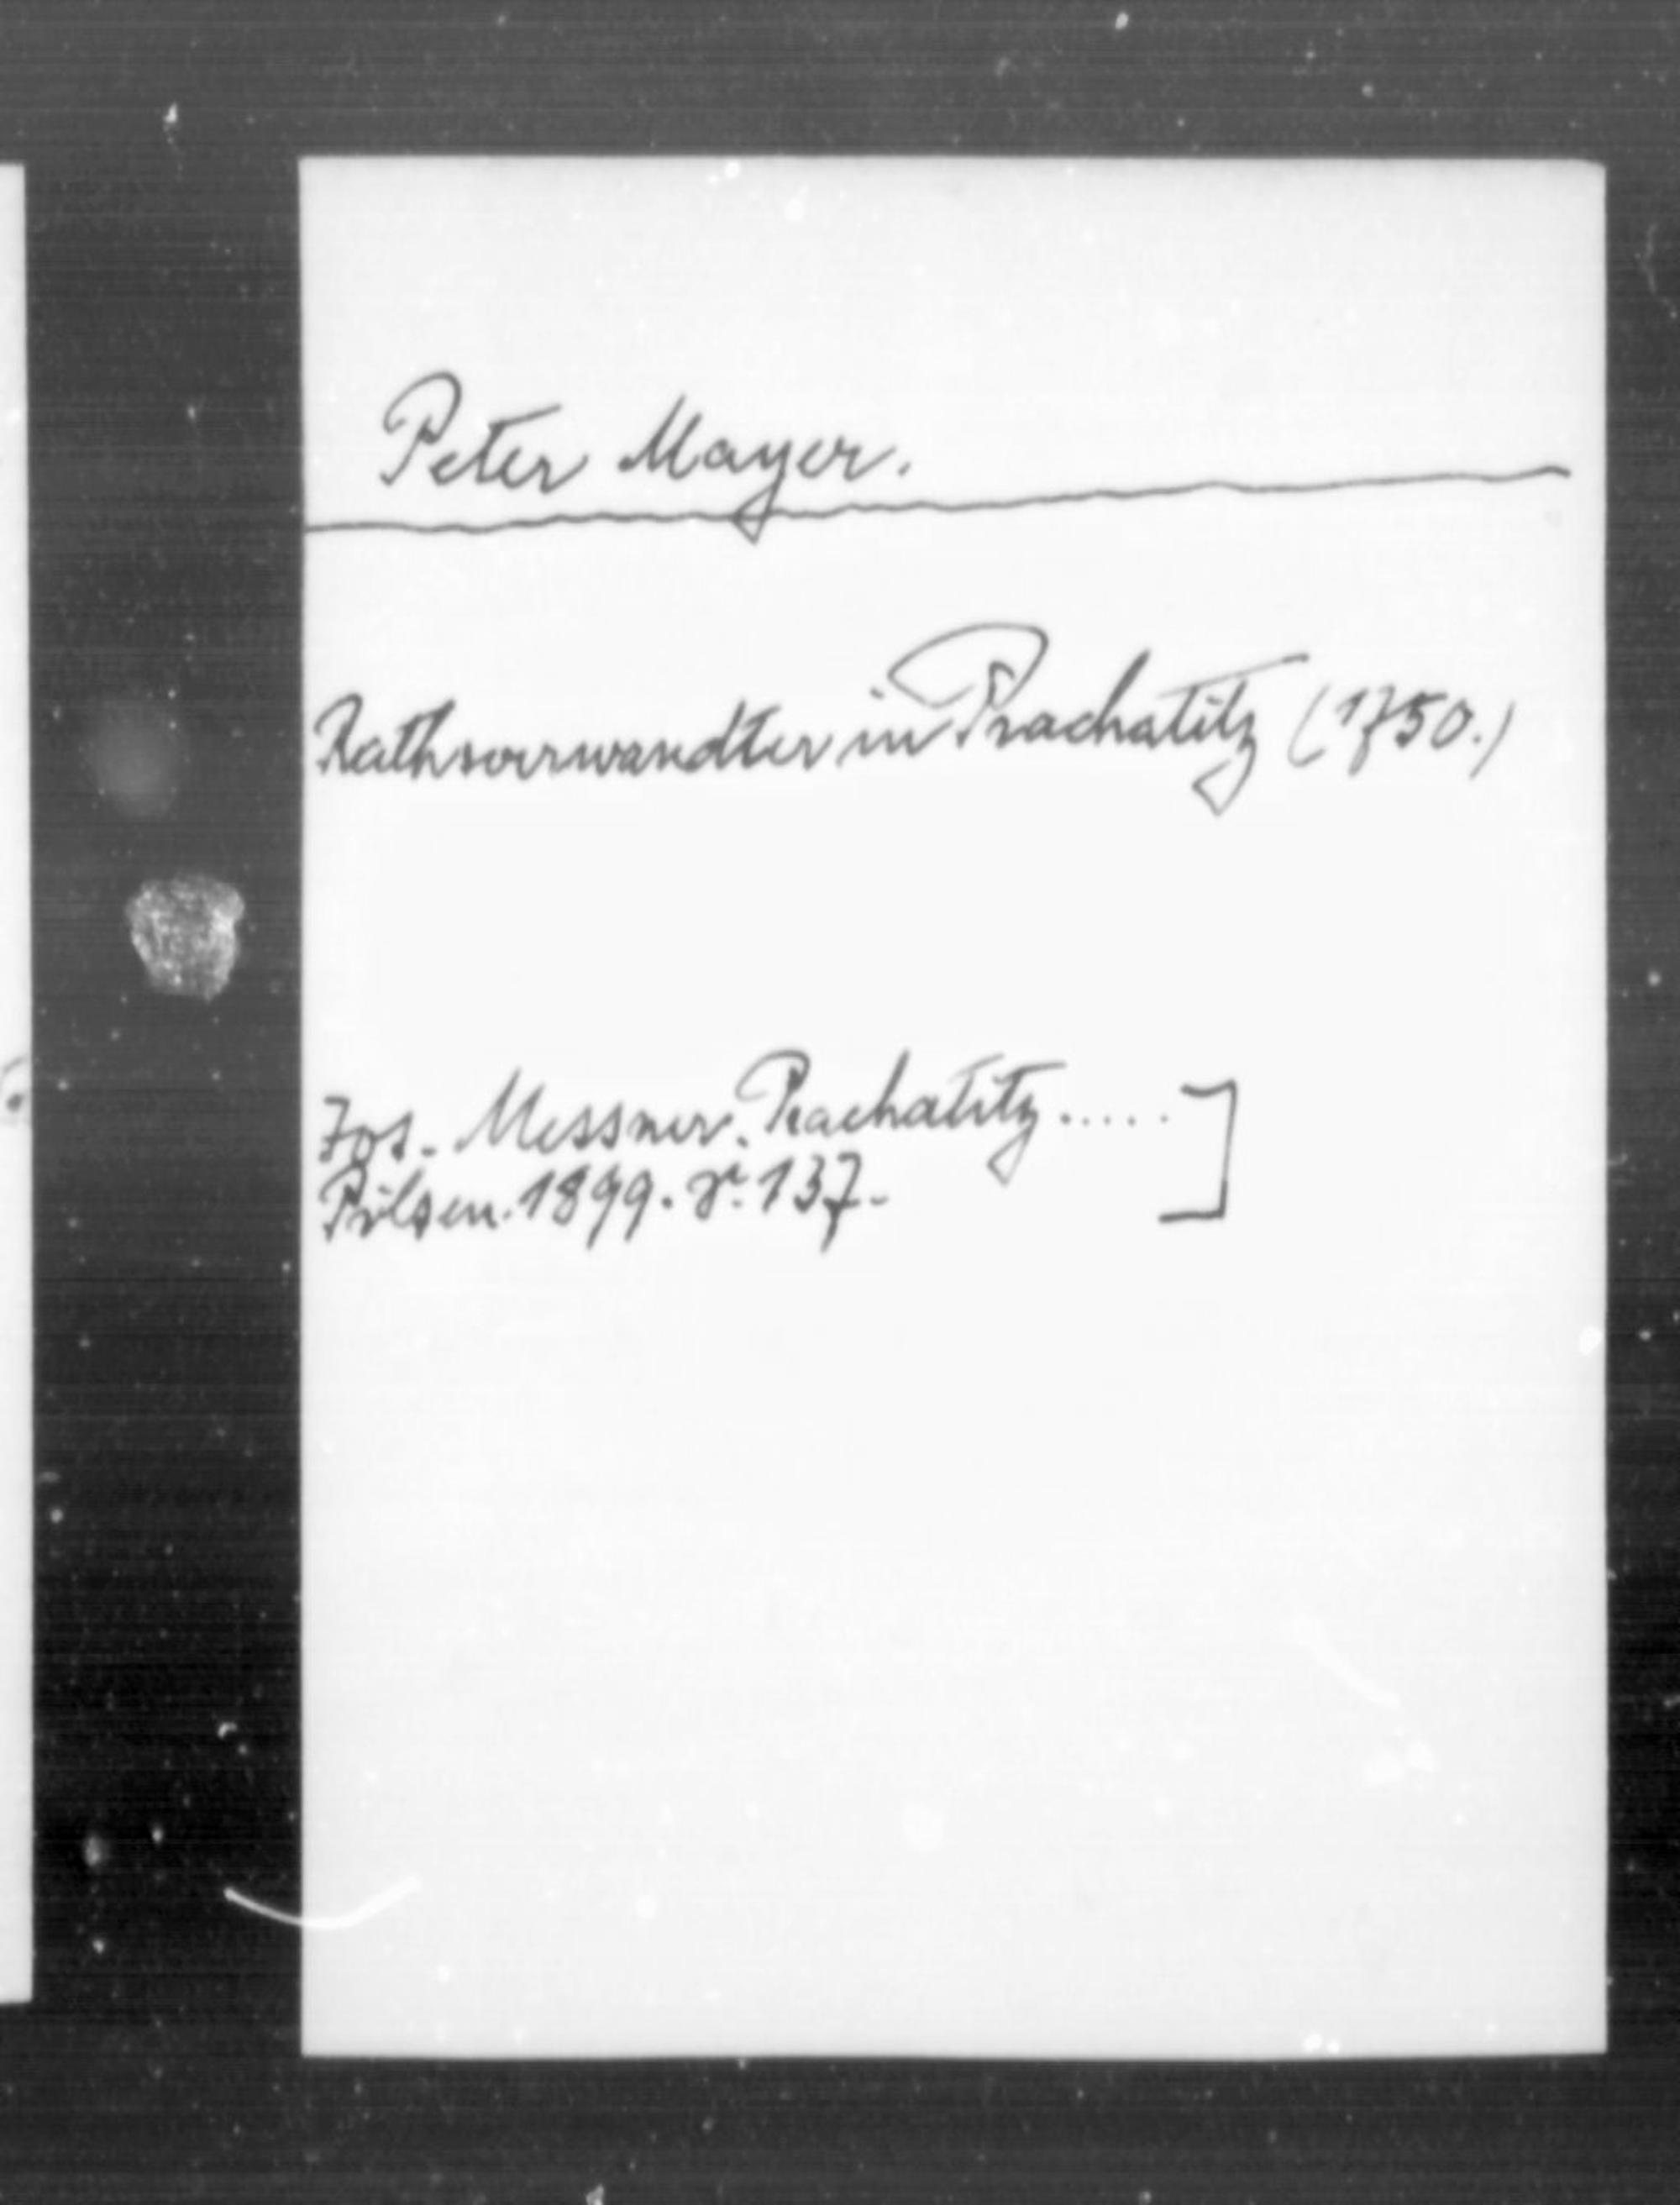 Peter Mayer.
Rathsverwandter in Prachatitz (1750.)
Jos. Messner. Prachatitz.....]
Pilsen. 1899. 137.